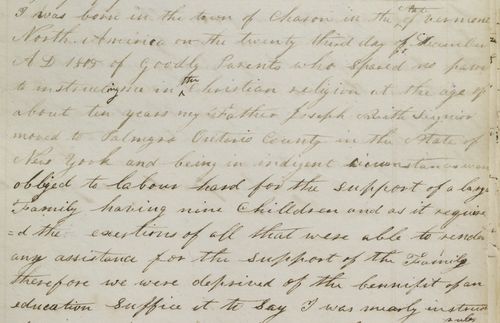 I was born in the town of Charon in the of the Vermont
North America on the twenty third day of December
A D 1805 of goodly Parents who spared no pains
to instructing me in the Christian religion at the age of
about ten years my Father Joseph Smith Seignior
moved to Palmyra Ontario County in the State of
New York and being in indigent circumstances were
obliged to labour hard for the support of a large
Family having nine chilldren and as it require
=d the exertions of all that were able to render
any assistance for the support of the Family
therefore we were deprived of the bennifit of an
education Suffice it to Say I was mearly instruct
rules